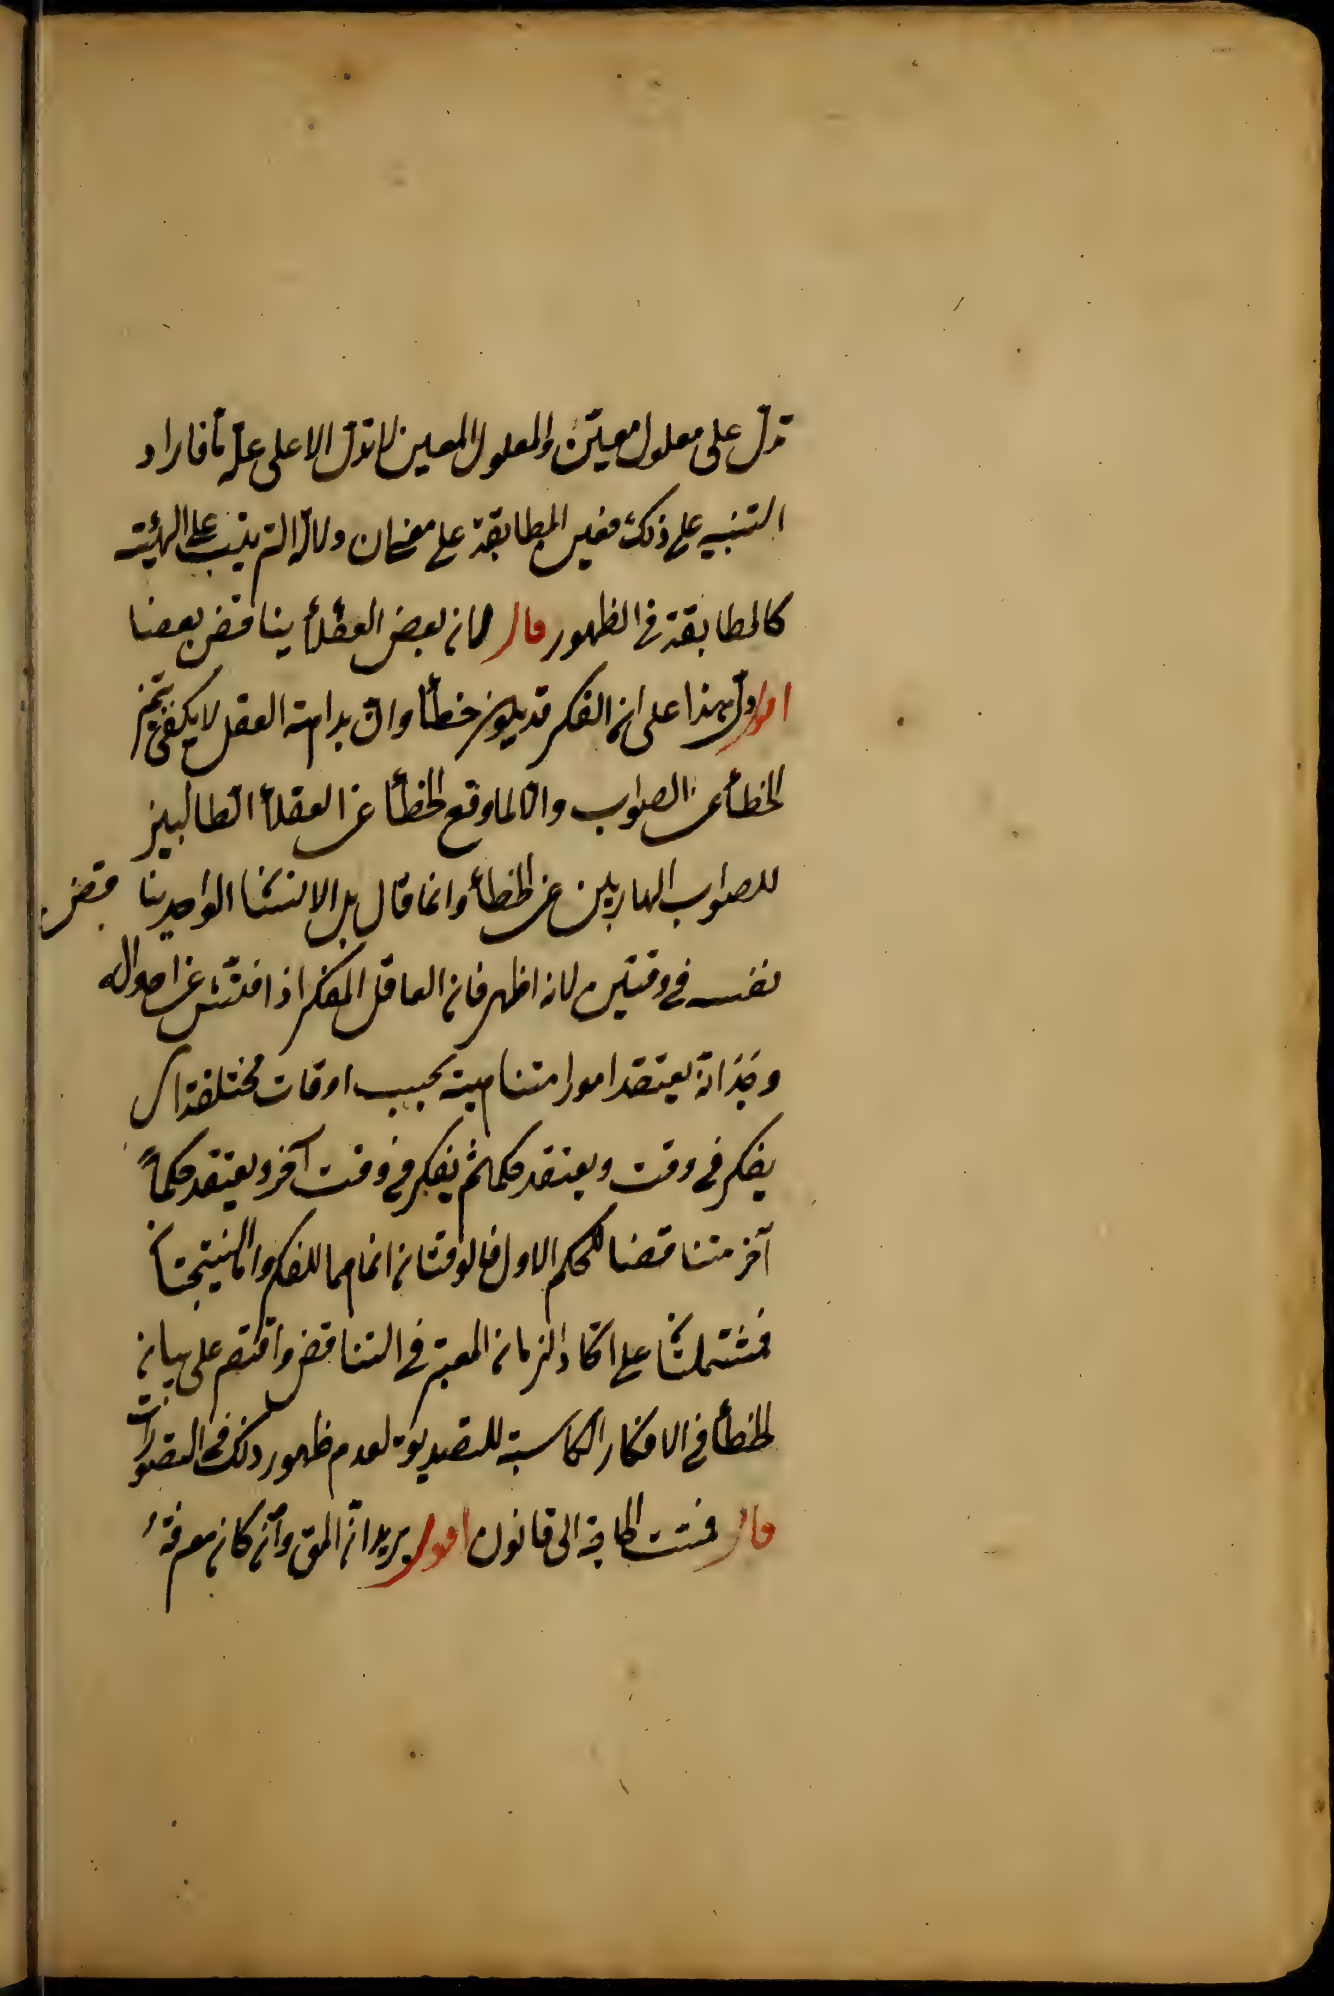 تدل على معلول معين والمعلول المعين لا تدل الا على علة ما فاراد
التنبيه على ذلك معنى المطابقة على معنيان ودلالة الترتيب على الهيئة
كالمطابقة في الظهور قال لان بعض العقلاء يناقض بعضا
اقول دل بهذا على ان الفكر قد يكون خطأ وان بداهة العقل لا يكفي تميز
الخطأ عن الصواب والا لما وقع الخطأ عن العقلاء الطالبين
للصواب الهاربين عن الخطأ وانما قال بل الانسان الواحد يناقض
نفسه في وقتين لانه اظهر فان العاقل المفكر اذا فتش عن احواله
وجد انه يعتقد امورا متناهية بحسب اوقات مختلفة اى
يفكر في وقت ويعتقد حكما ثم يفكر في وقت آخر ويعتقد حكماً
آخر متناقضا للحكم الاول فالوقتان انما هما للفكر واما النتيجتان
فمشتملتان على اتحاد الزمان المعتبر في التناقض واقتصر على بيان
الخطأ في الافكار الكاسبة للتصديقات لعدم ظهور ذلك في التصورات
قال فمست الحاجة الى قانون اقول يريد ان المق وان كان معرفة